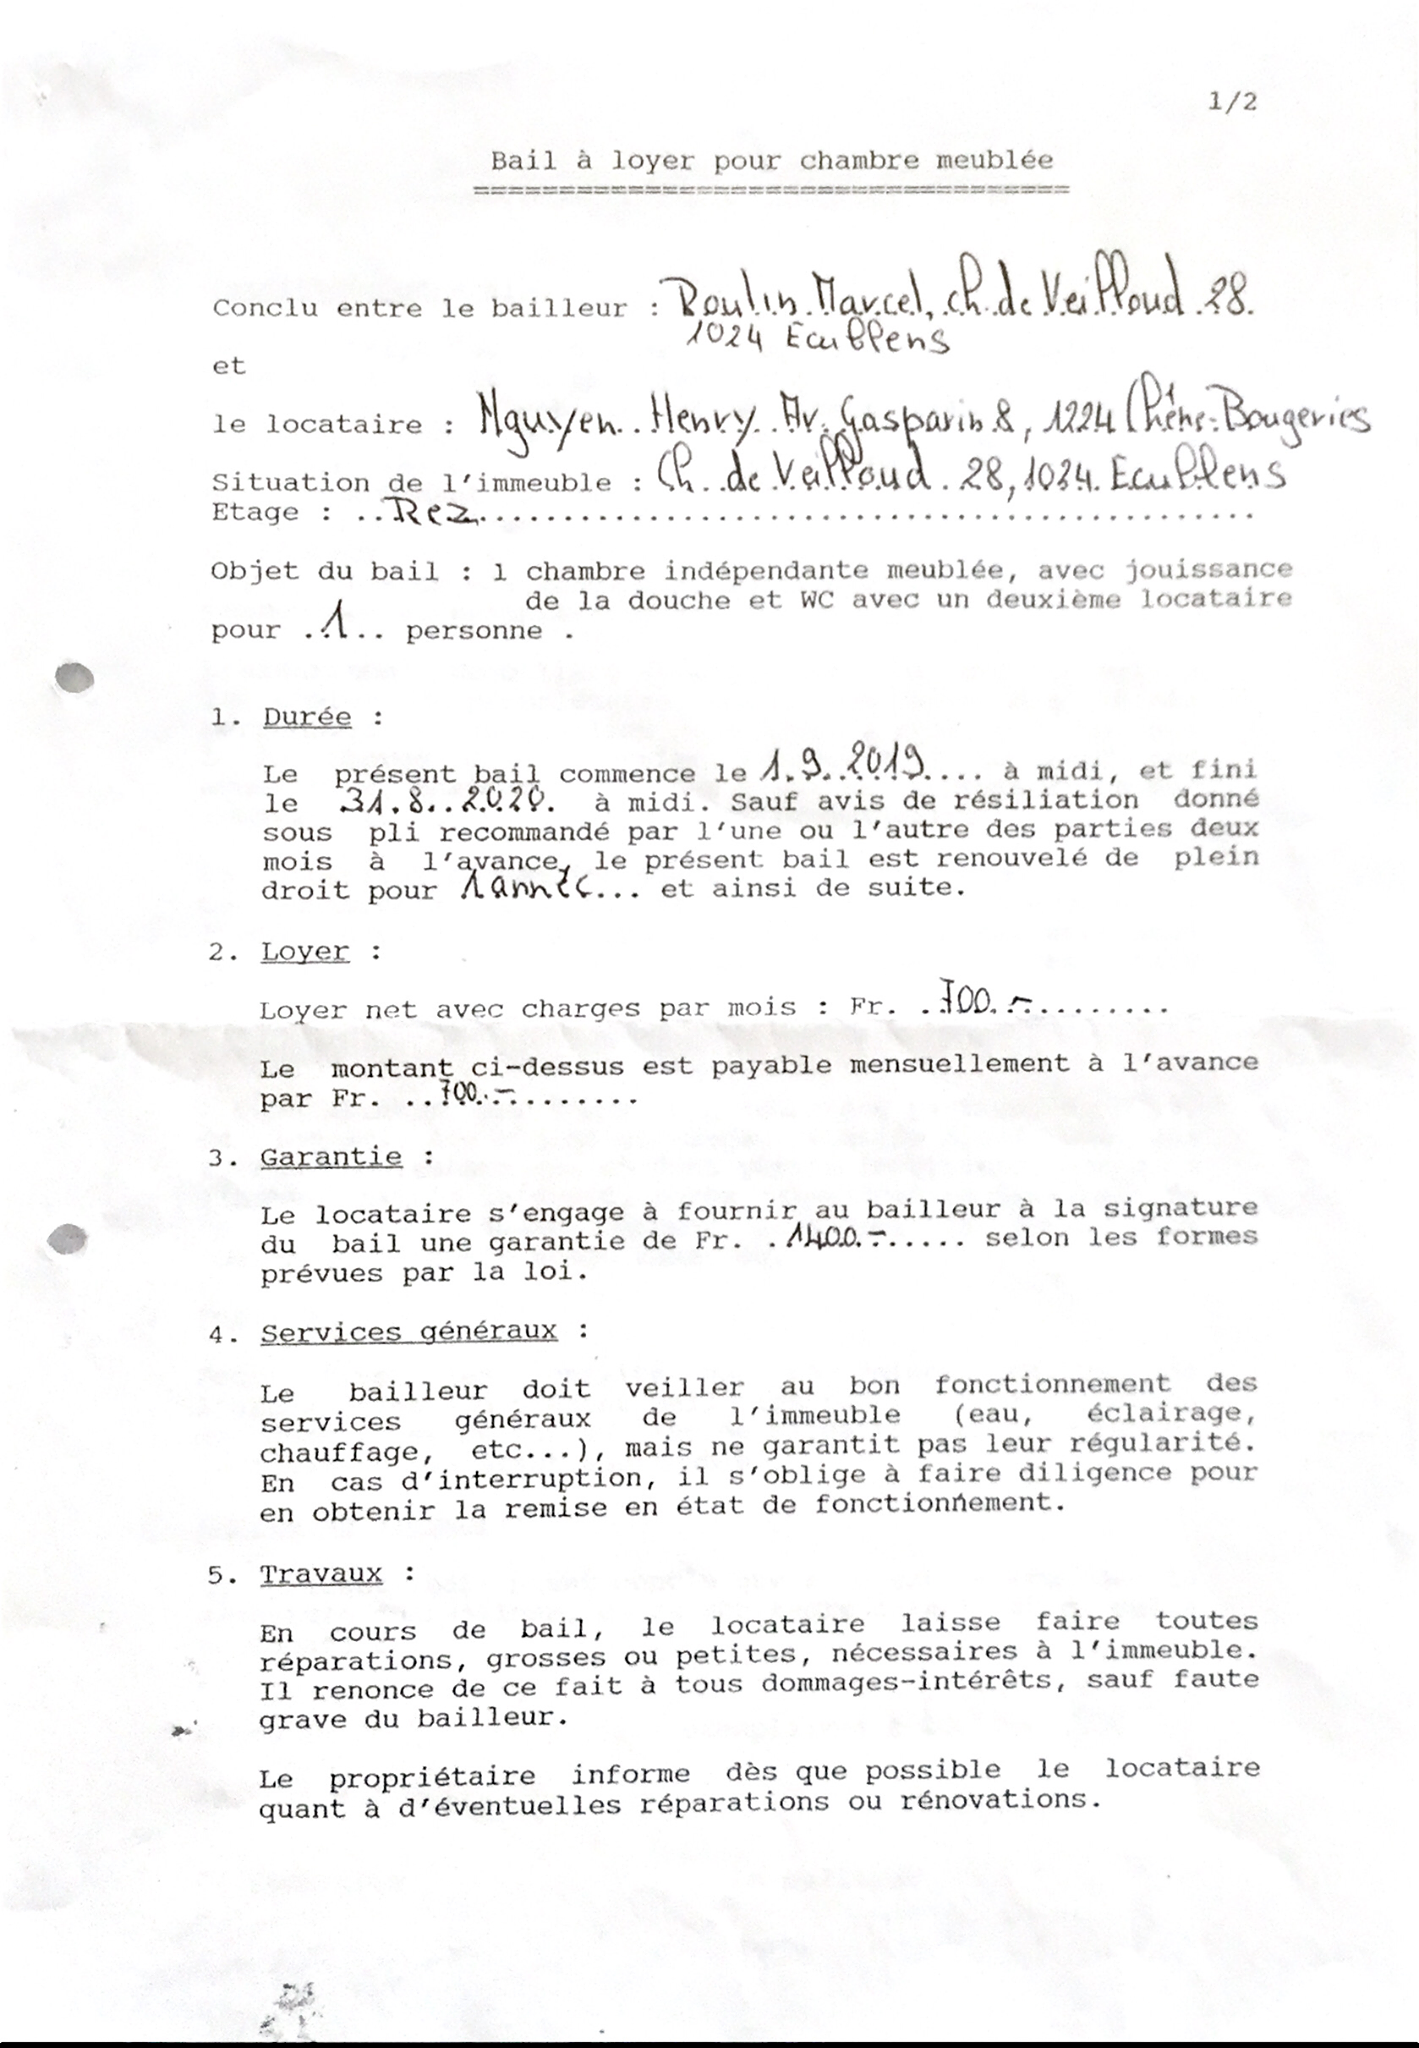 1/2
Bail à loyer pour chambre meublée
===================================
Conclu entre le bailleur : Roulin Marcel, ch. de Veilloud 28.
1024 Ecublens
et
le locataire : Nguyen Henry Av. Gasparin 8, 1224 Chêne-Bougeries
Situation de l'immeuble : Ch. de Veilloud 28, 1024 Ecublens
Etage : ..Rez............................................
Objet du bail : 1 chambre indépendante meublée, avec jouissance
de la douche et WC avec un deuxième locataire
pour ..1.. personne .
1. Durée :
Le présent bail commence le 1.9.2019.... à midi, et fini
le 31.8..2020. à midi. Sauf avis de résiliation donné
sous pli recommandé par l'une ou l'autre des parties deux
mois à l'avance, le présent bail est renouvelé de plein
droit pour 1 année... et ainsi de suite.
2. Loyer :
Loyer net avec charges par mois : Fr. ..700.-.........
Le montant ci-dessus est payable mensuellement à l'avance
par Fr. ..700.-........
3. Garantie :
Le locataire s'engage à fournir au bailleur à la signature
du bail une garantie de Fr. .1400.-..... selon les formes
prévues par la loi.
4. Services généraux :
Le bailleur doit veiller au bon fonctionnement des
services généraux de l'immeuble (eau, éclairage,
chauffage, etc...), mais ne garantit pas leur régularité.
En cas d'interruption, il s'oblige à faire diligence pour
en obtenir la remise en état de fonctionnement.
5. Travaux :
En cours de bail, le locataire laisse faire toutes
réparations, grosses ou petites, nécessaires à l'immeuble.
Il renonce de ce fait à tous dommages-intérêts, sauf faute
grave du bailleur.
Le propriétaire informe dès que possible le locataire
quant à d'éventuelles réparations ou rénovations.